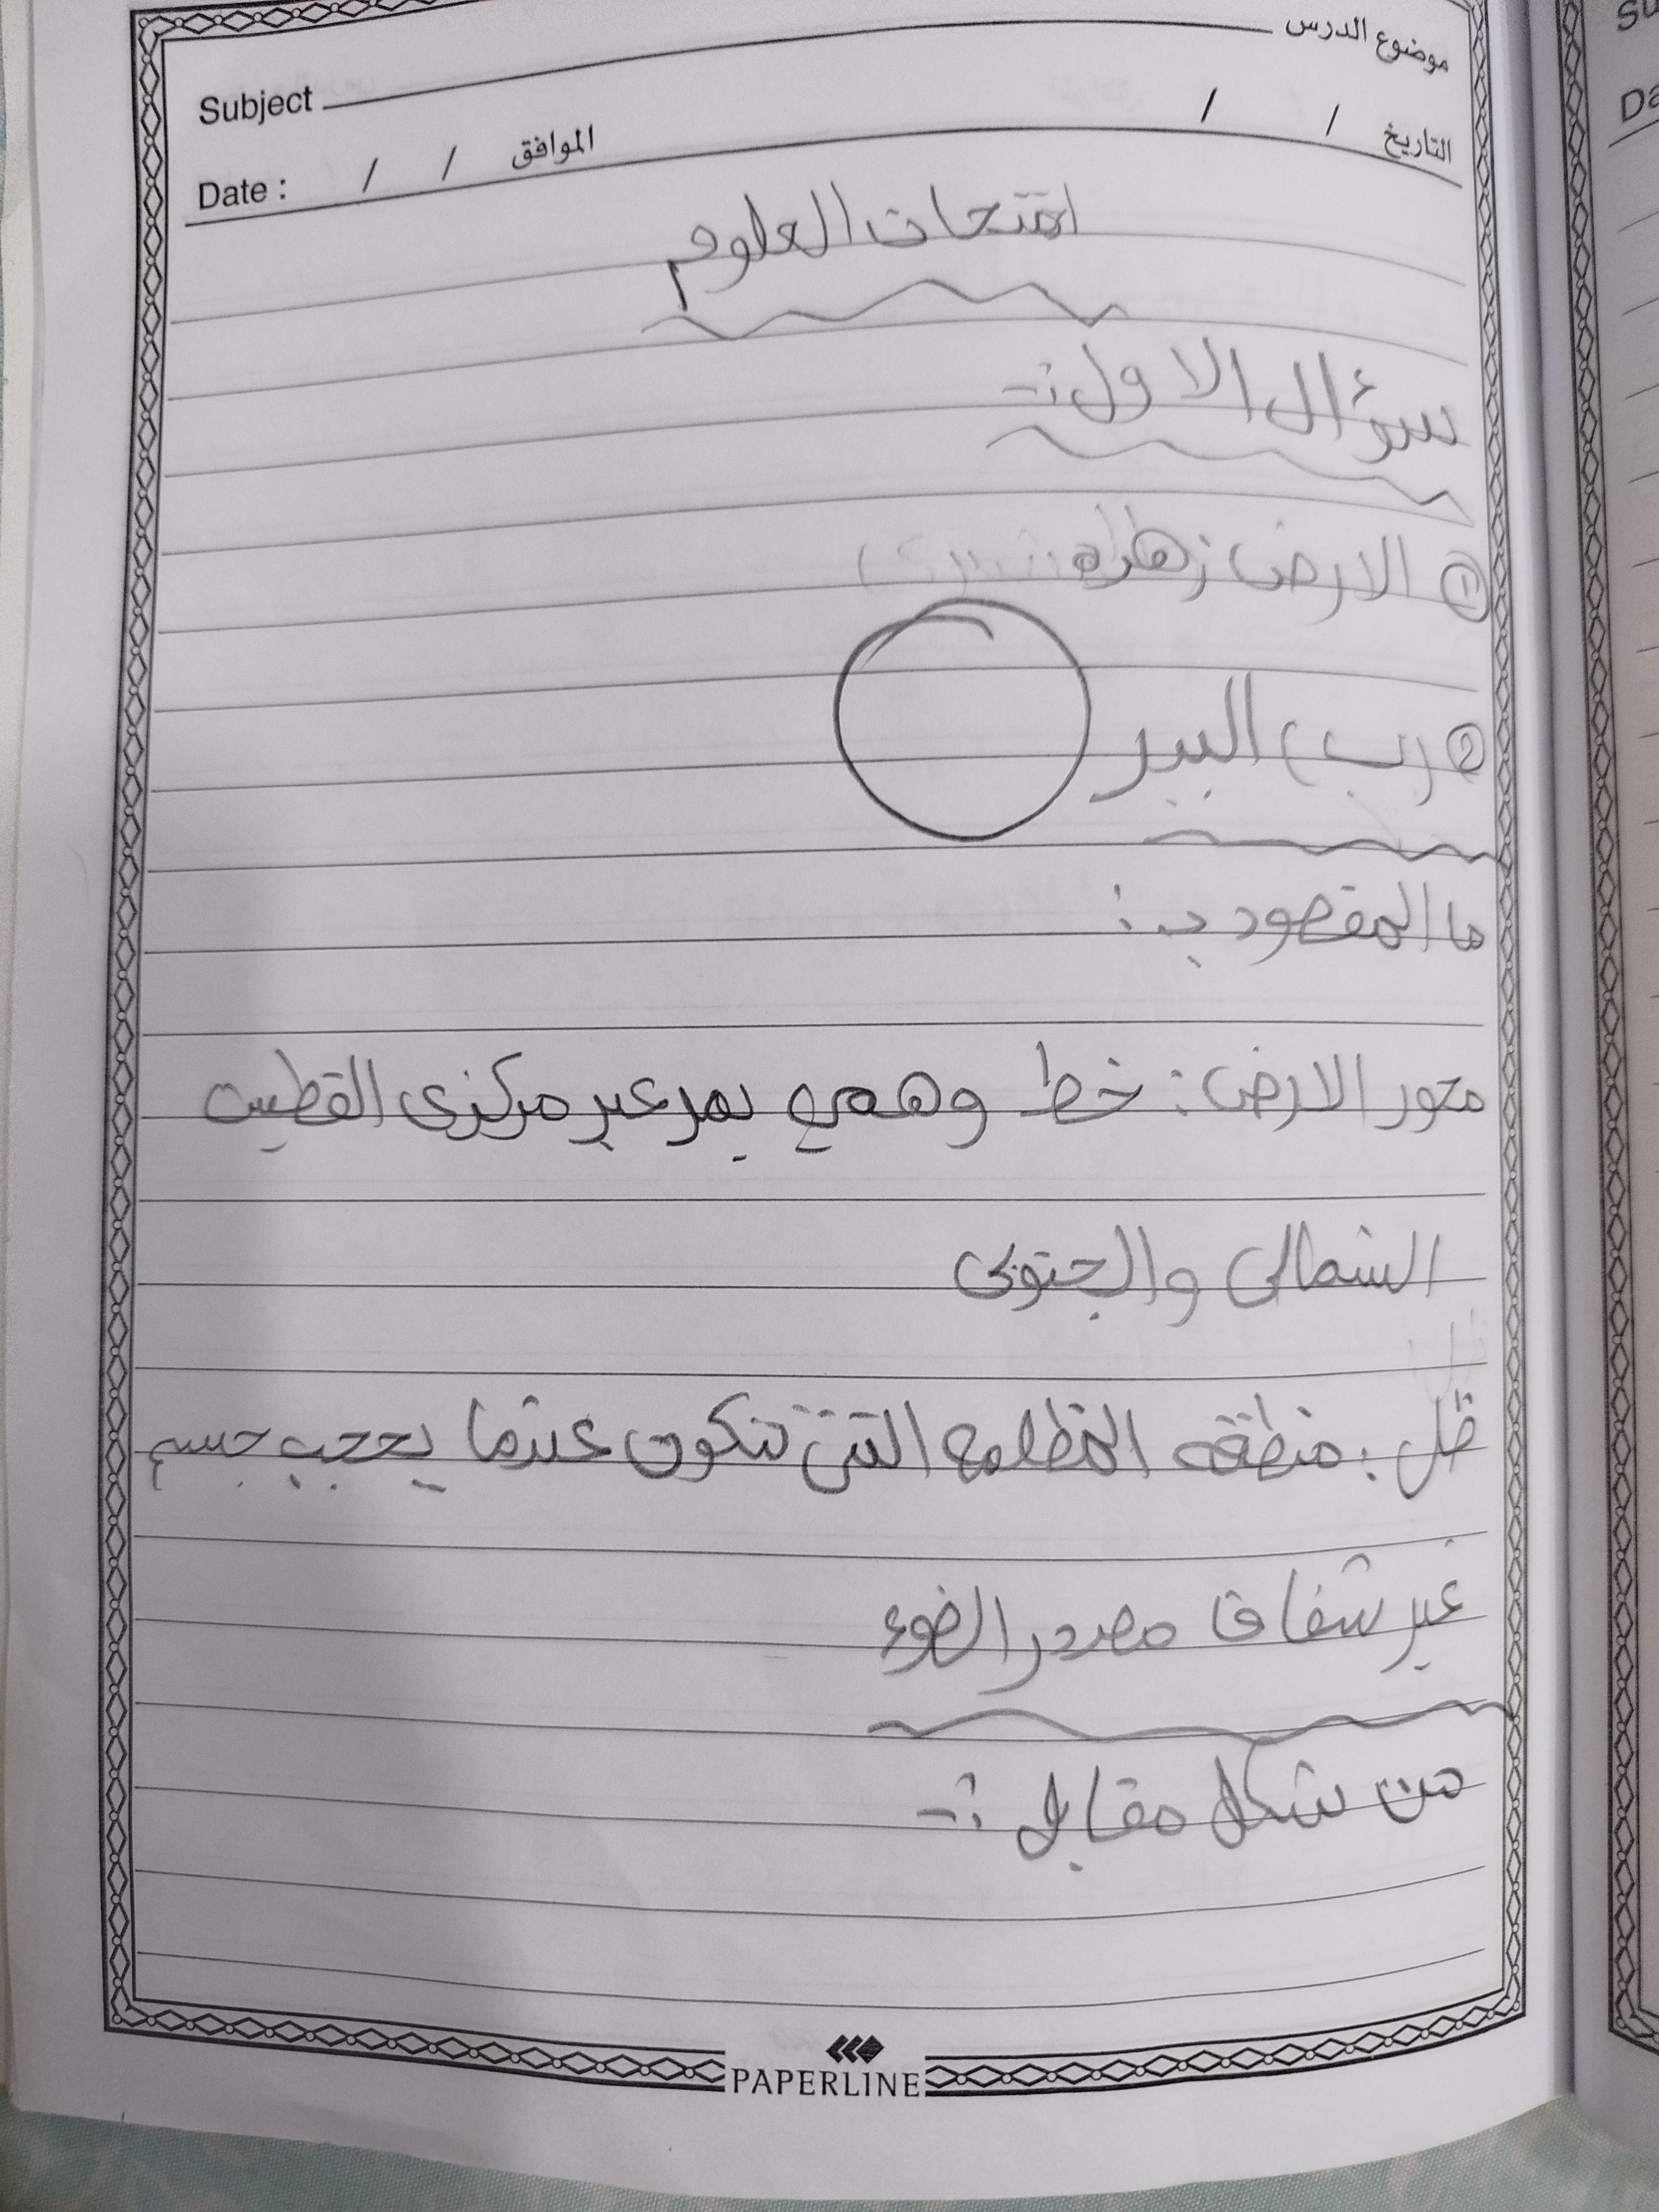 موضوع الدرس
Subject
التاريخ / /
Date : / / الموافق
امتحان العلوم
سؤال الاول :-
① الارض زهراء
② (ب) البير
ما المقصود بـ :
محور الارض : خط وهمي يمر عبر مركزى القطبين
الشمالى والجنوبى
ظل : منطقه المظلمه التى تتكون عندما يحجب جسم
غير شفاف مصدر الضوء
من شكل مقابل :-
PAPERLINE
Su
Da